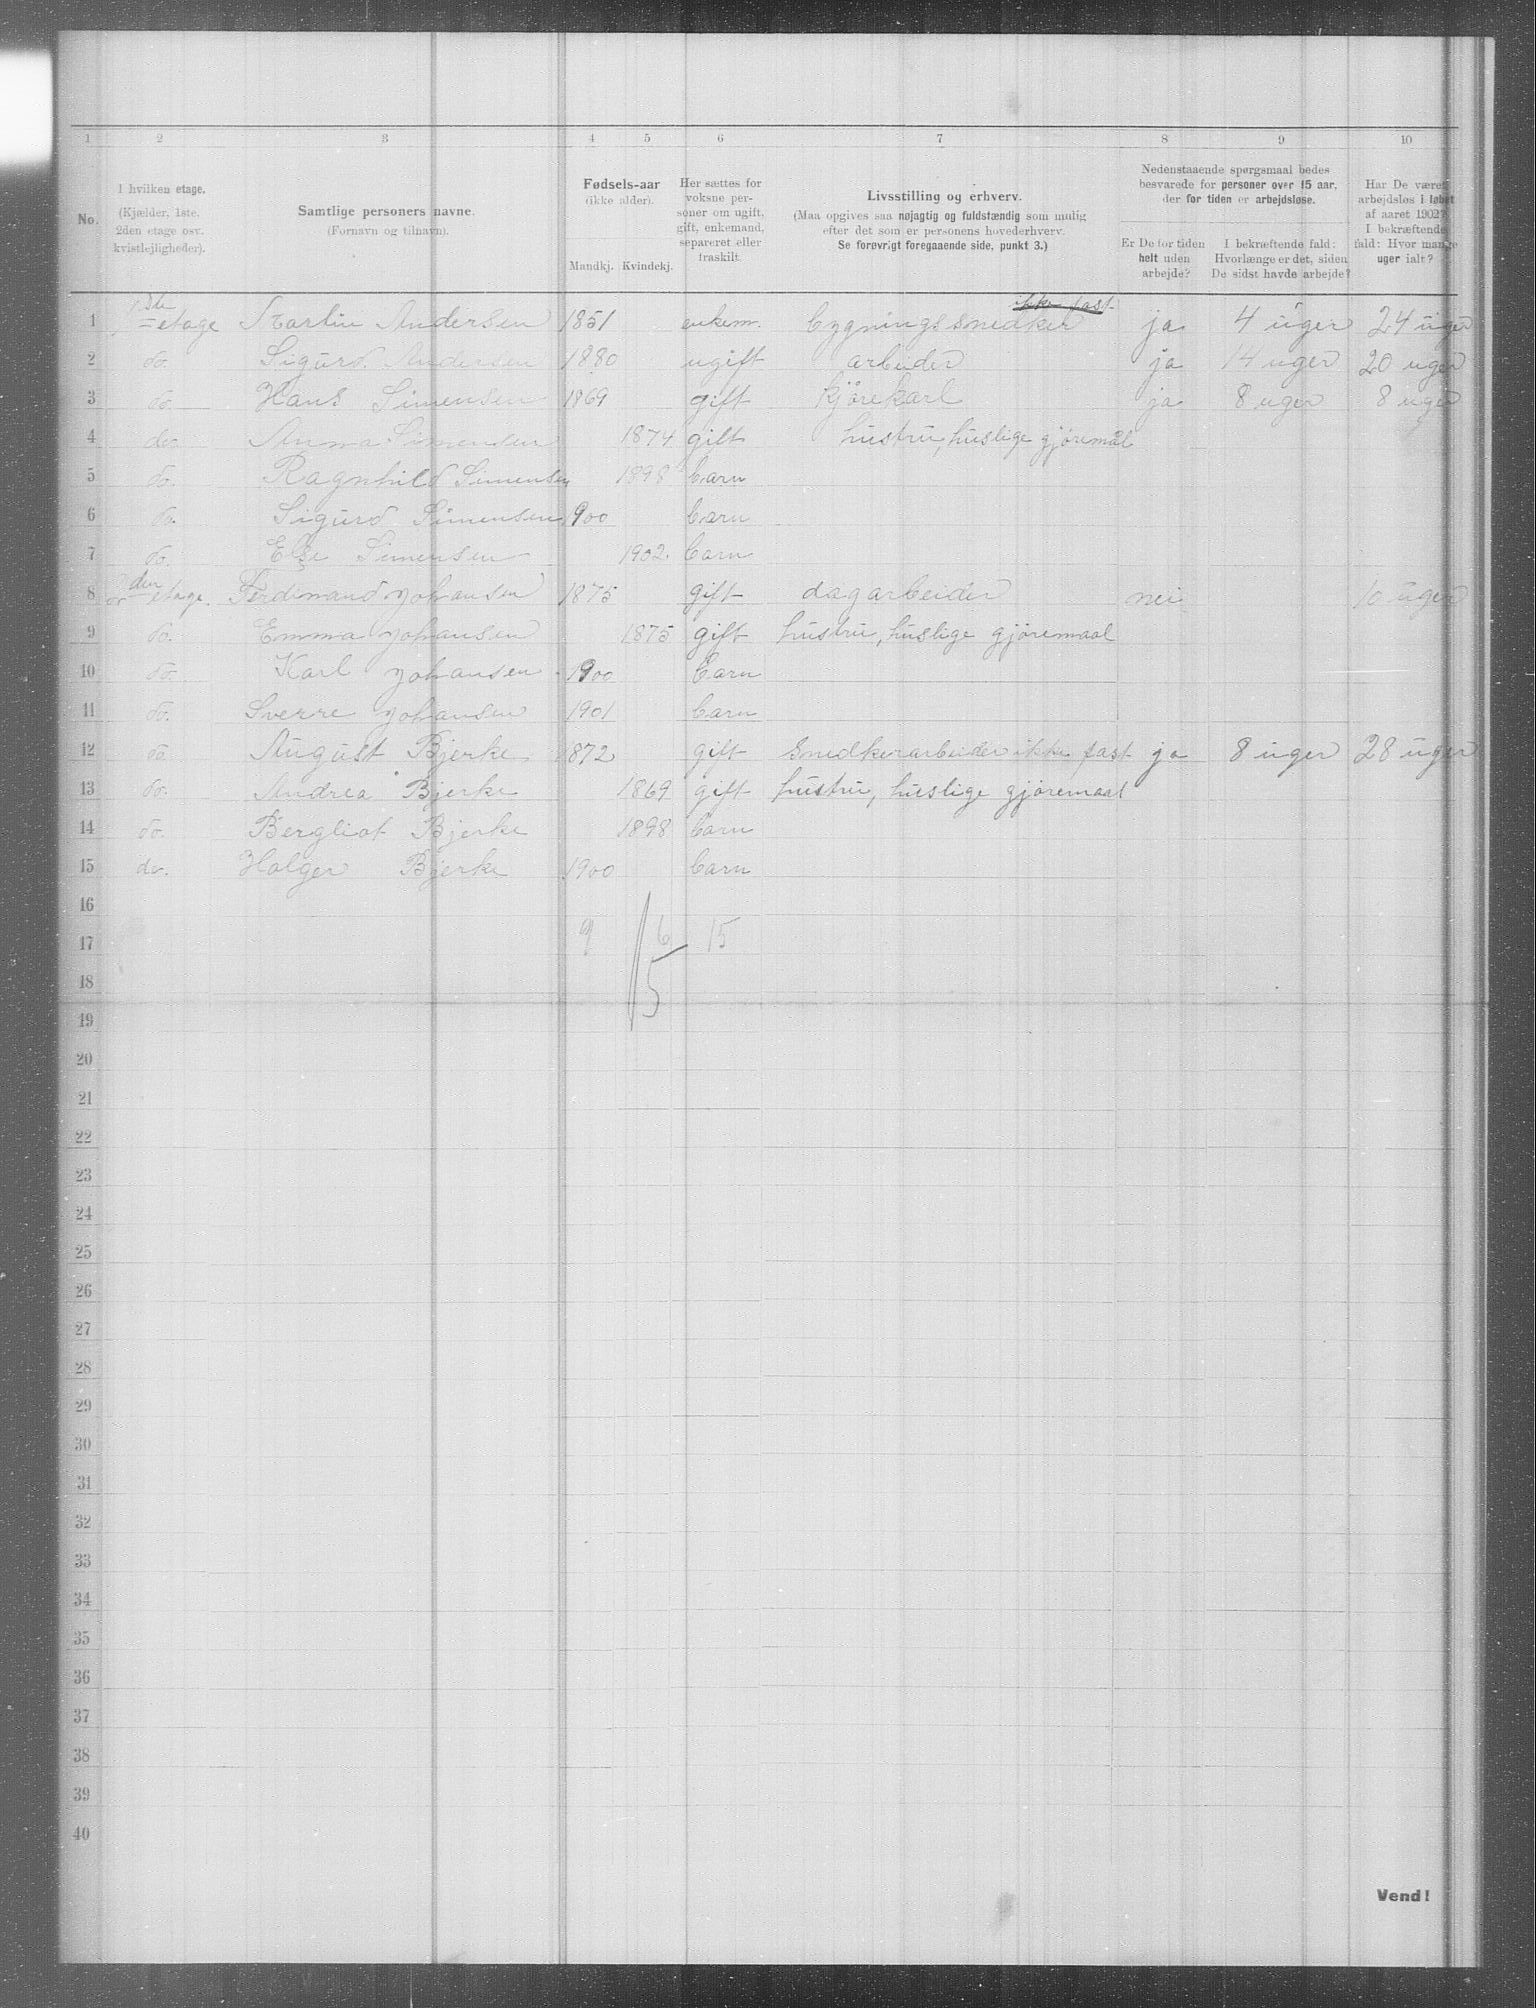 1 2 3 4 5 6 7 8 9 10
No.
I hvilken etage.
(Kjælder, 1ste.
2den etage osv.
kvistlejligheder).
Samtlige personers navne.
(Fornavn og tilnavn).
Fødsels-aar
(ikke alder).
Mandkj. Kvindekj.
Her sættes for
voksne per-
soner om ugift,
gift, enkemand,
separeret eller
fraskilt.
Livsstilling og erhverv.
(Maa opgives saa nøjagtig og fuldstændig som mulig
efter det som er personens hovederhverv.
Se forøvrigt foregaaende side, punkt 3.)
Nedenstaaende spørgsmaal bedes
besvarede for personer over 15 aar,
der for tiden er arbejdsløse.
Er De for tiden
helt uden
arbejde?
I bekræftende fald:
Hvorlænge er det, siden
De sidst havde arbejde?
Har De været
arbejdsløs i løbet
af aaret 1902?
I bekræftende
fald: Hvor mange
uger ialt?
ikke fast
1 1ste etage Martin Andersen 1851 enkem. bygningssnedker ja 4 uger 24 uger
2 do. Sigurd Andersen 1880 ugift arbeider ja 14 uger 20 uger
3 do. Hans Simensen 1869 gift kjørekarl ja 8 uger 8 uger
4 do. Anna Simensen 1874 gift hustru, huslige gjøremål
5 do. Ragnhild Simensen 1898 barn
6 do. Sigurd Simensen 1900 barn
7 do. Else Simensen 1902 barn
8 2den etage. Ferdinand Johansen 1875 gift dagarbeider nei 10 uger
9 do. Emma Johansen 1875 gift hustru, huslige gjøremaal
10 do. Karl Johansen 1900 barn
11 do. Sverre Johansen 1901 barn
12 do. August Bjerke 1872 gift Snedkerarbeider ikke fast ja 8 uger 28 uger
13 do. Andrea Bjerke 1869 gift hustru, huslige gjøremaal
14 do. Bergliot Bjerke 1898 barn
15 do. Holger Bjerke 1900 barn
16
17 9 6 15
18 15
19
20
21
22
23
24
25
26
27
28
29
30
31
32
33
34
35
36
37
38
39
40
Vend!